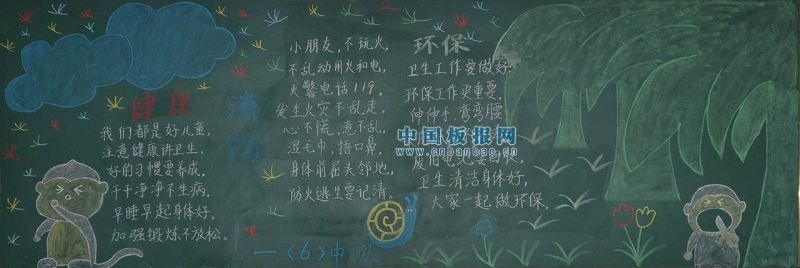 健康
我们都是好儿童,
注意健康讲卫生。
好的习惯要养成,
干干净净不生病,
早睡早起身体好,
加强锻炼不放松。
消防
小朋友,不玩火,
不乱动用火和电,
火警电话119,
发生火灾不乱走,
心不慌,意不乱,
湿毛巾,捂口鼻,
身体前屈夫邻地,
防火逃生要记清。
环保
卫生工作要做好,
环保工作更重要,
伸伸手,弯弯腰
中国板报网
www.cnbanbao.cn
卫生清洁身体好,
大家一起做环保。
一〈6〉中队